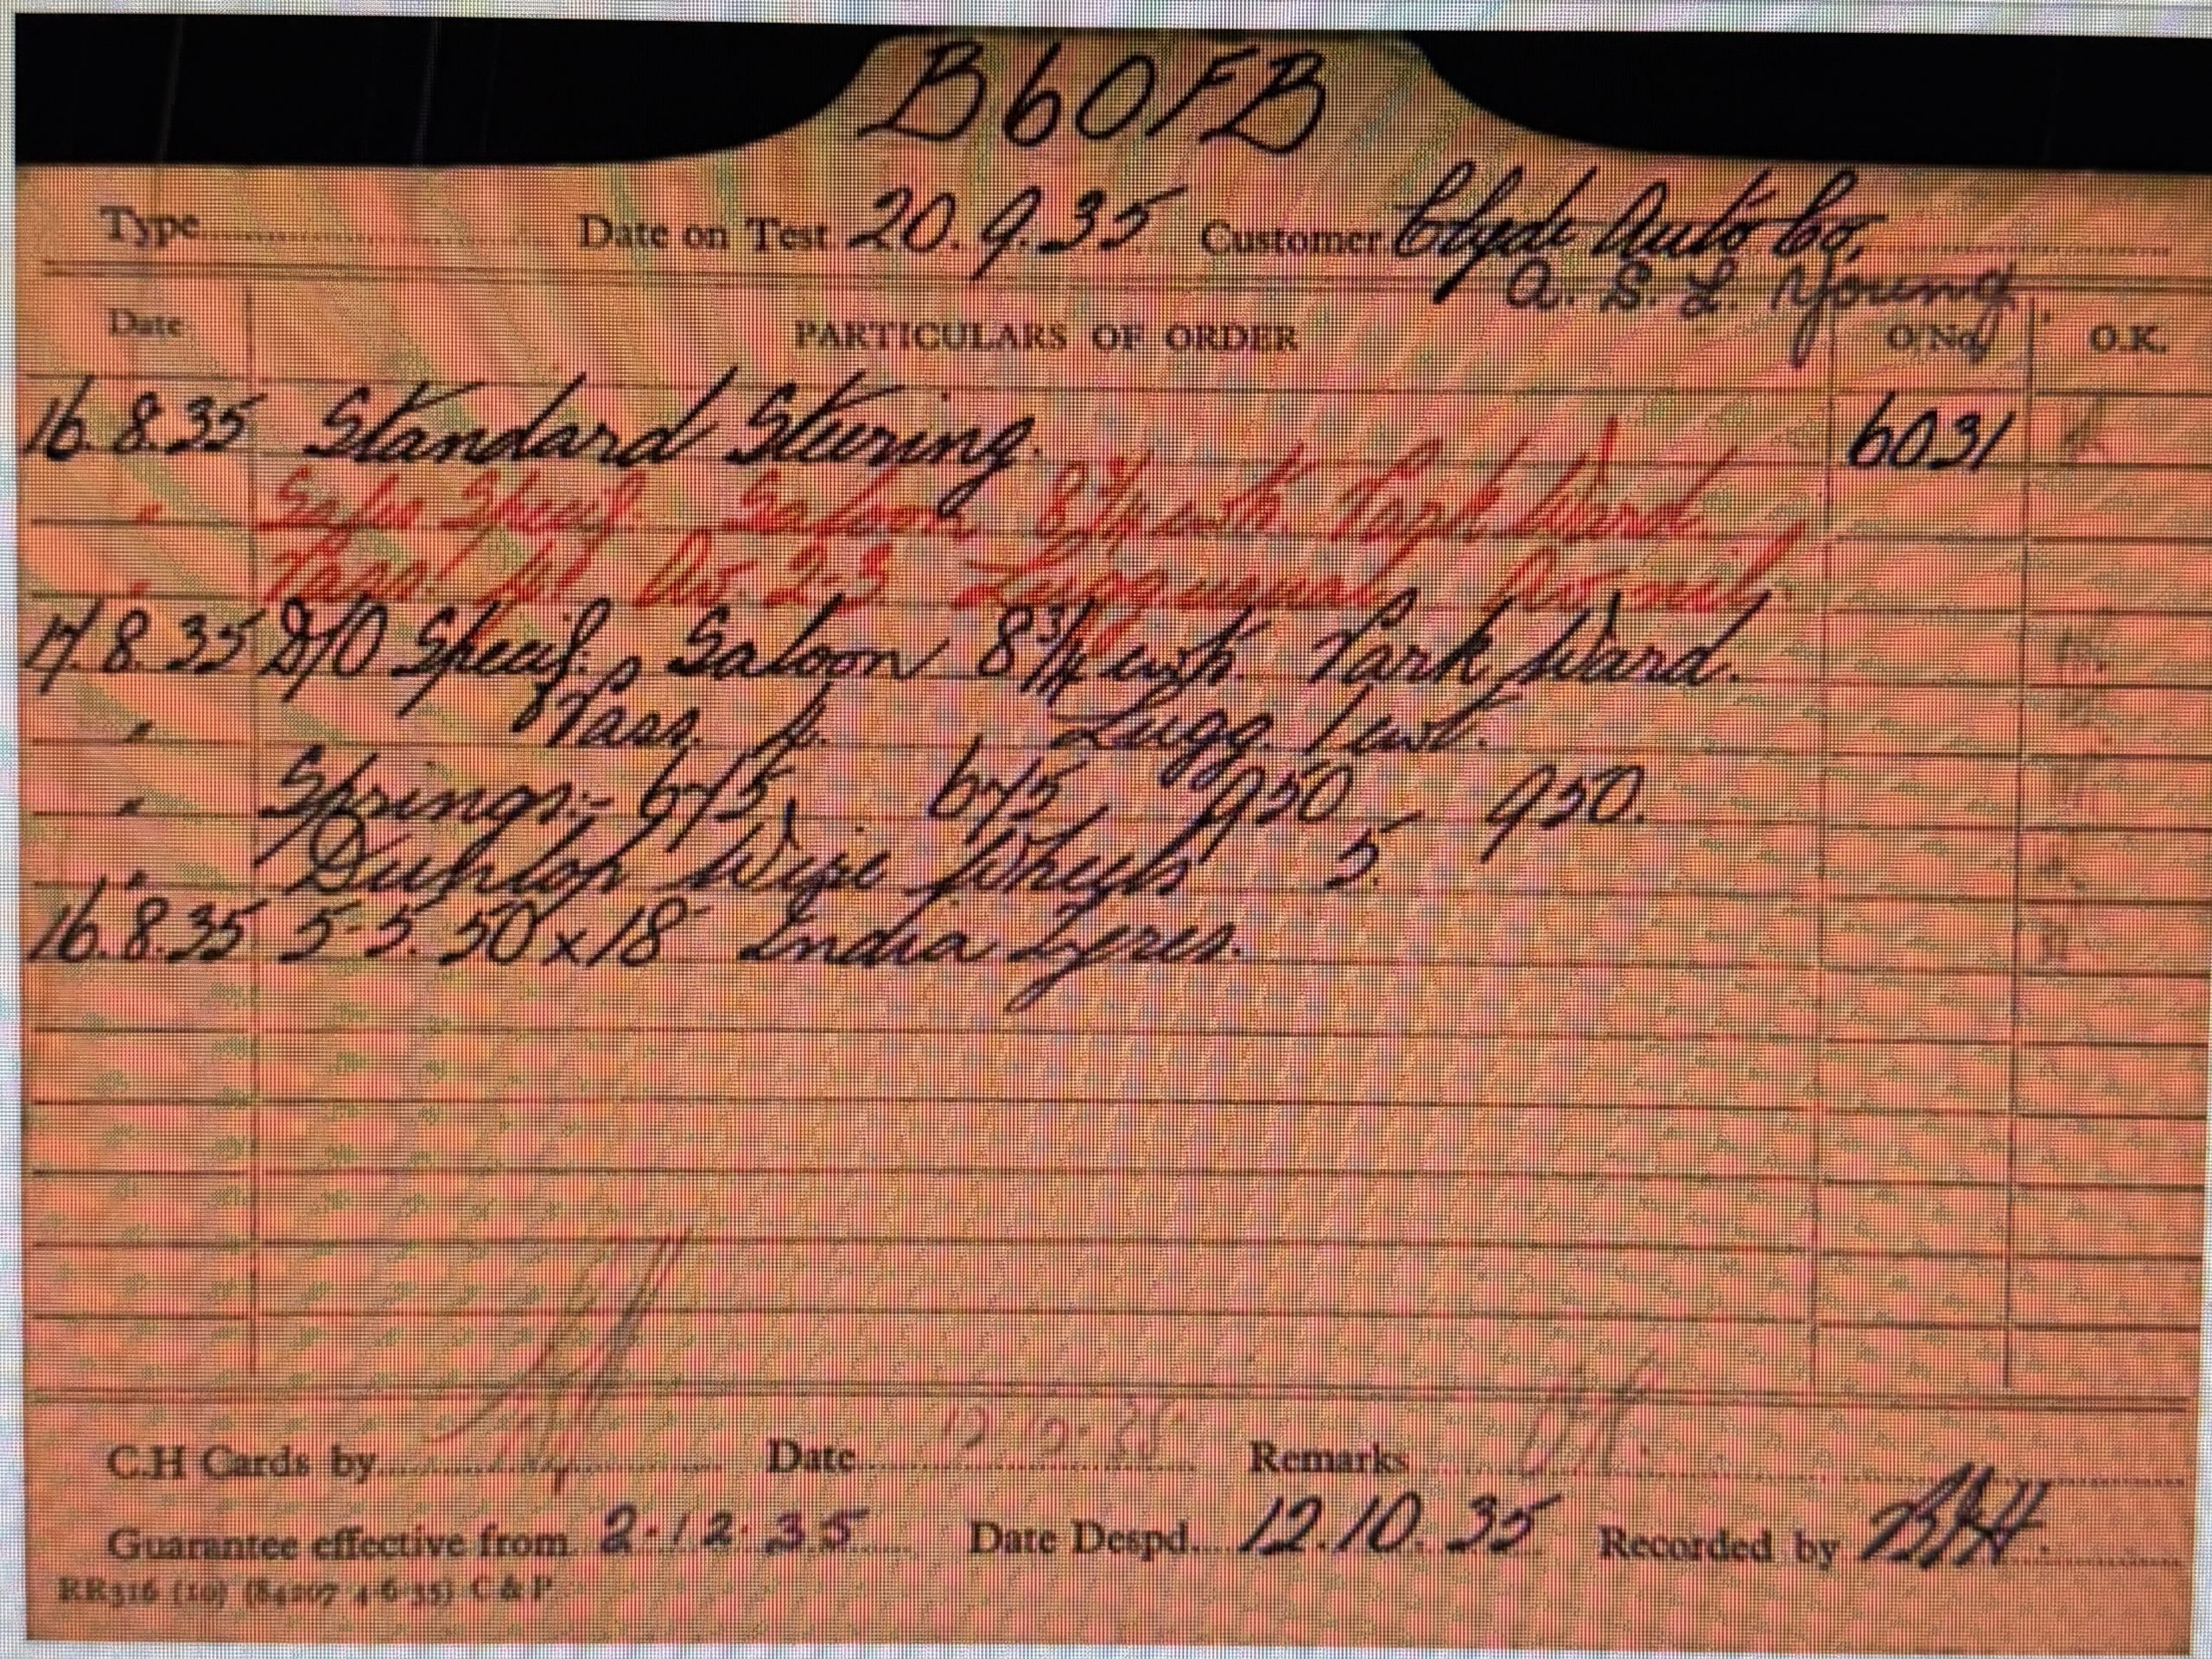 B60FB
Type Date on Test 20.9.35 Customer Clyde Auto Co,
A. S. L. Young
Date PARTICULARS OF ORDER O/No. O.K.
16.8.35 Standard Steering. 6031
" Sales Specif. Saloon 8 3/4 cwt. Park Ward.
" Pass. Av. 2-3 Lugg. usual Av. nil.
17.8.35 D/O Specif. Saloon 8 3/4 cwt. Park Ward.
" Pass. Lugg. 1 cwt.
" Springs:- 675, 675, 950, 950.
" Dunlop Wire Wheels 5.
16.8.35 5-5.50 x 18 India Tyres.
C.H Cards by Date Remarks
Guarantee effective from 2.12.35 Date Despd. 12.10.35 Recorded by
RR316 (10) (84207 4-6-35) C & P